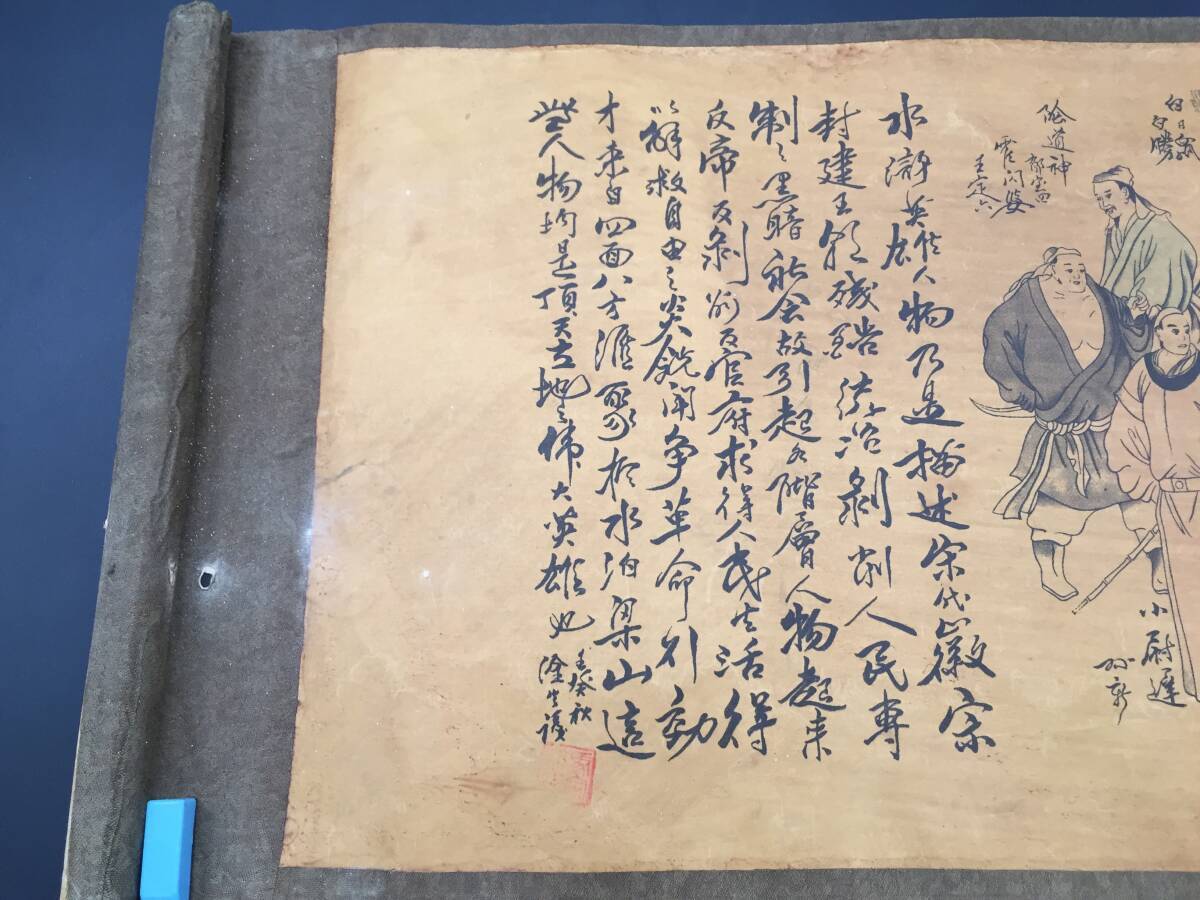 白日鼠
白勝
險道神
郁宝四
霍闪婆
王定六
小尉遲
孙新
水滸英雄人物乃是描述宋代徽宗
封建王朝殘酷統治剝削人民專
制之黑暗社会故引起各階層人物起来
反帝反剝削反官府求得人民生活得
以解救自由之争革命行動
才来自四面八方滙聚於水泊梁山這
些人物均是頂天立地之偉大英雄也
癸秋